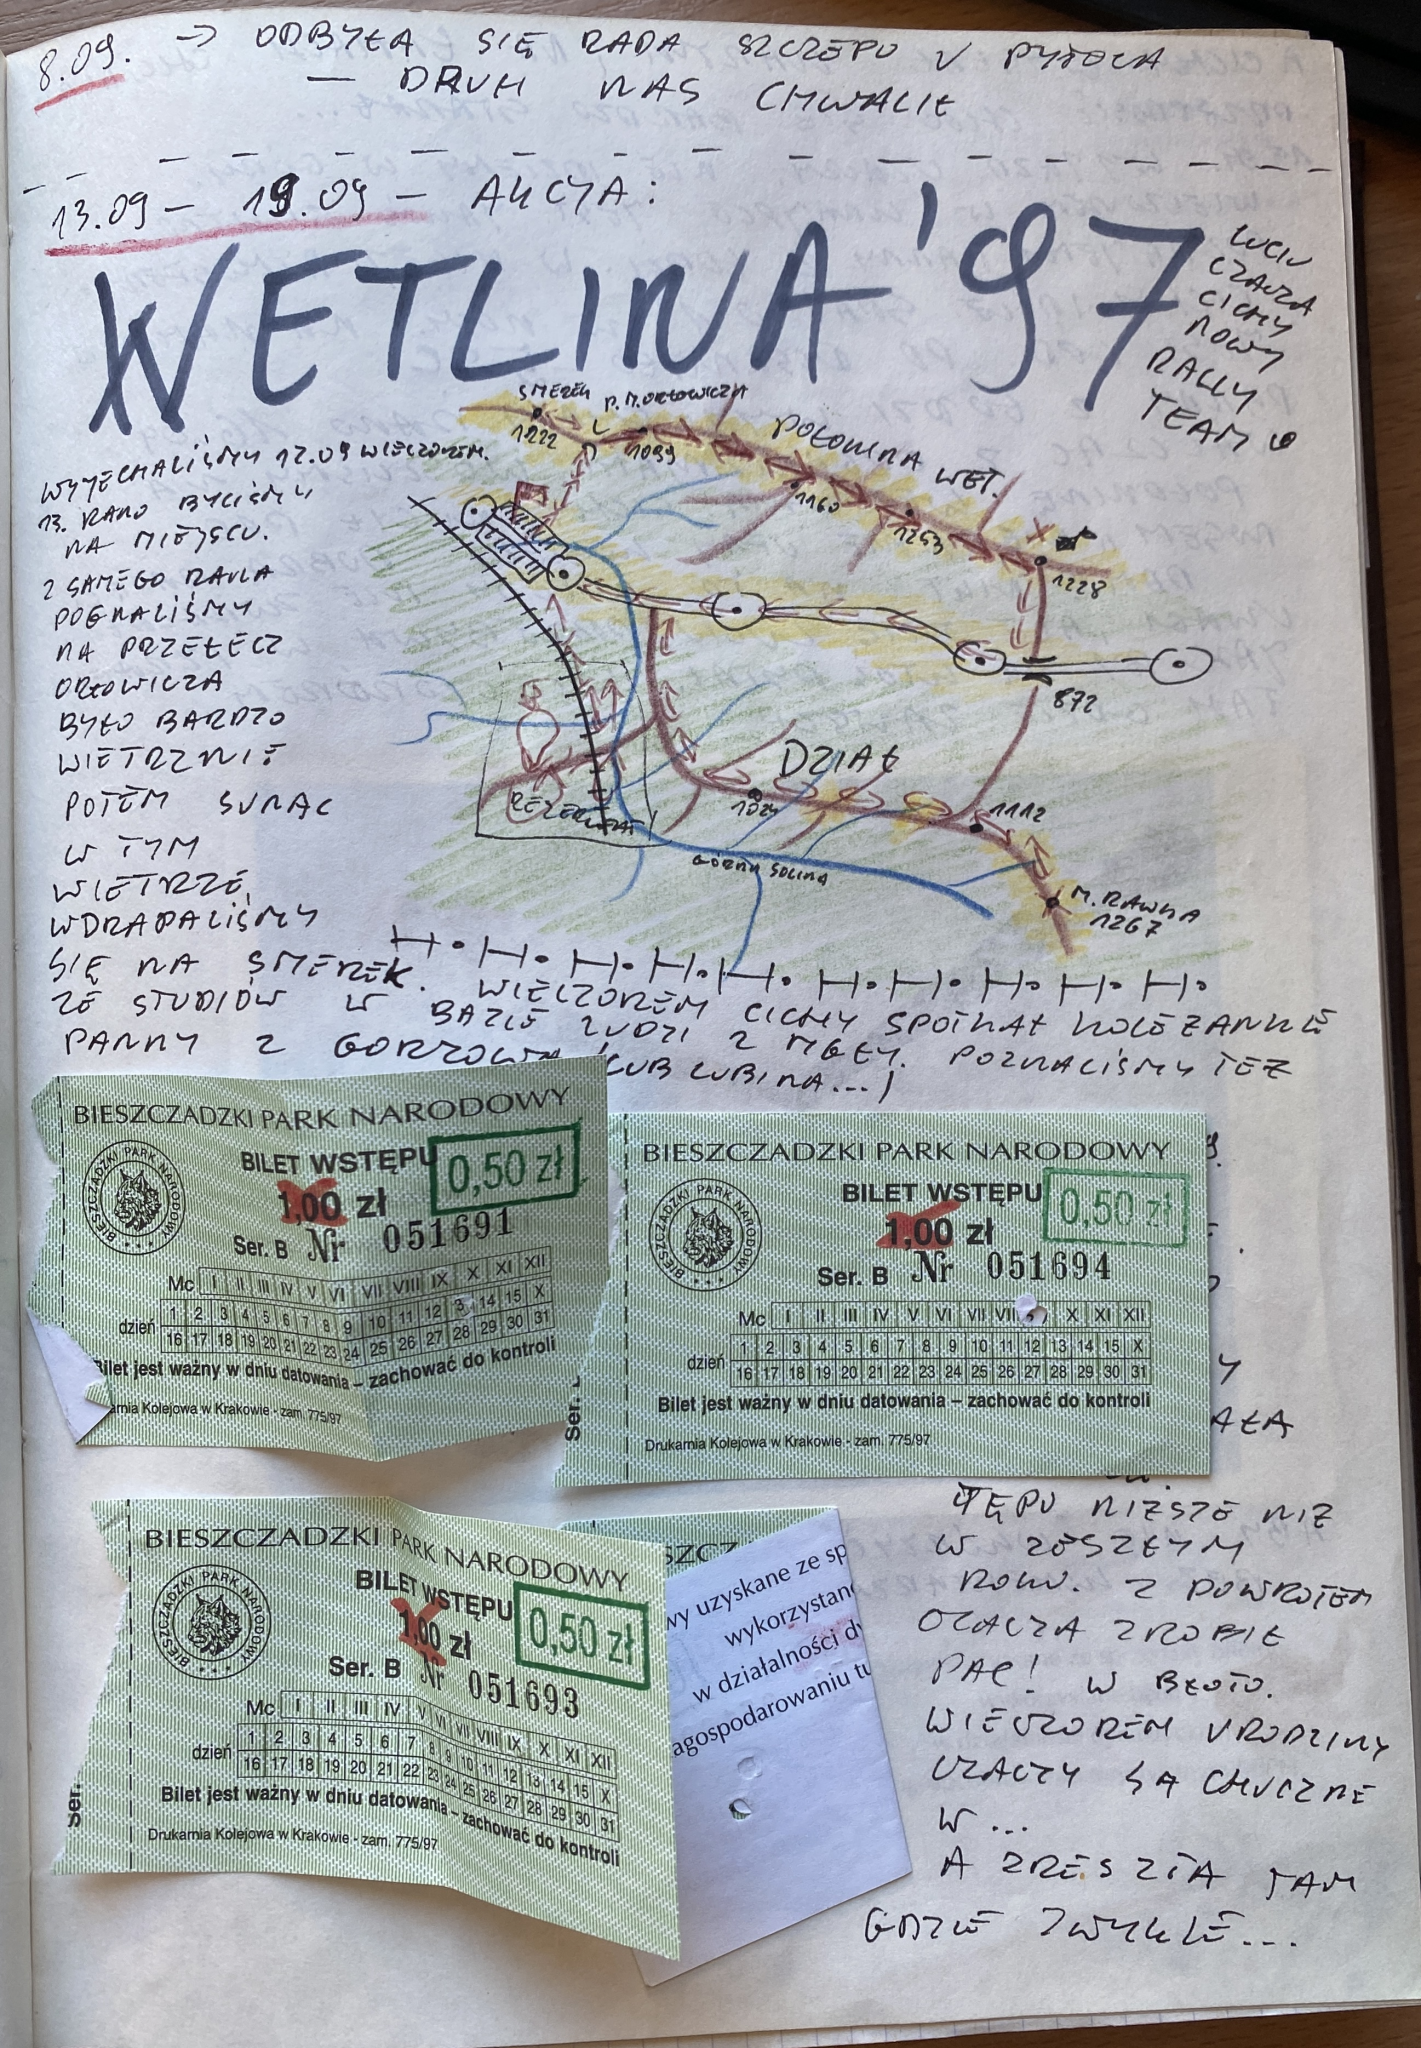 8.09. → ODBYŁA SIĘ RADA SZCZEPU
— DRUH NAS CHWALIŁ
13.09 – 19.09 – AKCJA:
WETLINA '97
LUCIU
CZACZA
CICHY
NOWY
RALLY
TEAM
WYJECHALIŚMY 12.09 WIECZOREM.
13. RANO BYLIŚMY
NA MIEJSCU.
Z SAMEGO RANA
POGNALIŚMY
NA PRZEŁĘCZ
ORŁOWICZA
BYŁO BARDZO
WIETRZNIE
POTEM SUNĄC
W TYM
WIETRZE,
WDRAPALIŚMY
SIĘ NA SMEREK. WIECZOREM CICHY SPOTKAŁ KOLEŻANKĘ
ZE STUDIÓW W BAZIE LUDZI Z MGŁY. POZNALIŚMY TEŻ
PANNY Z GORZOWA (LUB LUBINA...)
SMEREK
1222
P. M. ORŁOWICZA
1099
POŁONINA WET.
1160
1253
1228
872
DZIAŁ
1024
1112
M. RAWKA
1267
GÓRNA SOLINA
BIESZCZADZKI PARK NARODOWY
BIESZCZADZKI PARK NARODOWY
BILET WSTĘPU
0,50 zł
1,00 zł
Ser. B Nr 051691
Mc I II III IV V VI VII VIII IX X XI XII
dzień
1 2 3 4 5 6 7 8 9 10 11 12 3 14 15 X
16 17 18 19 20 21 22 23 24 25 26 27 28 29 30 31
Bilet jest ważny w dniu datowania – zachować do kontroli
arnia Kolejowa w Krakowie - zam. 775/97
BIESZCZADZKI PARK NARODOWY
BIESZCZADZKI PARK NARODOWY
BILET WSTĘPU
0,50 zł
1,00 zł
Ser. B Nr 051694
Mc I II III IV V VI VII VIII X XI XII
dzień
1 2 3 4 5 6 7 8 9 10 11 12 13 14 15 X
16 17 18 19 20 21 22 23 24 25 26 27 28 29 30 31
Bilet jest ważny w dniu datowania – zachować do kontroli
Ser.
Drukarnia Kolejowa w Krakowie - zam. 775/97
AŁA
TĘPU NIŻSZE NIŻ
W ZESZŁYM
ROKU. Z POWROTEM
CZACZA ZROBIŁ
PAC! W BŁOTO.
WIECZOREM URODZINY
CZACZY SĄ CHUCZNE
W...
A ZRESZTĄ TAM
GDZIE ZWYKLE...
BIESZCZADZKI PARK NARODOWY
BIESZCZADZKI PARK NARODOWY
BILET WSTĘPU
0,50 zł
1,00 zł
Ser. B Nr 051693
Mc I II III IV V VI VII VIII IX X XI XII
dzień
1 2 3 4 5 6 7 8 9 10 11 12 13 14 15 X
16 17 18 19 20 21 22 23 24 25 26 27 28 29 30 31
Bilet jest ważny w dniu datowania – zachować do kontroli
Ser.
Drukarnia Kolejowa w Krakowie - zam. 775/97
SZCZ
wy uzyskane ze sp
wykorzystane
w działalności dy
agospodarowaniu tu